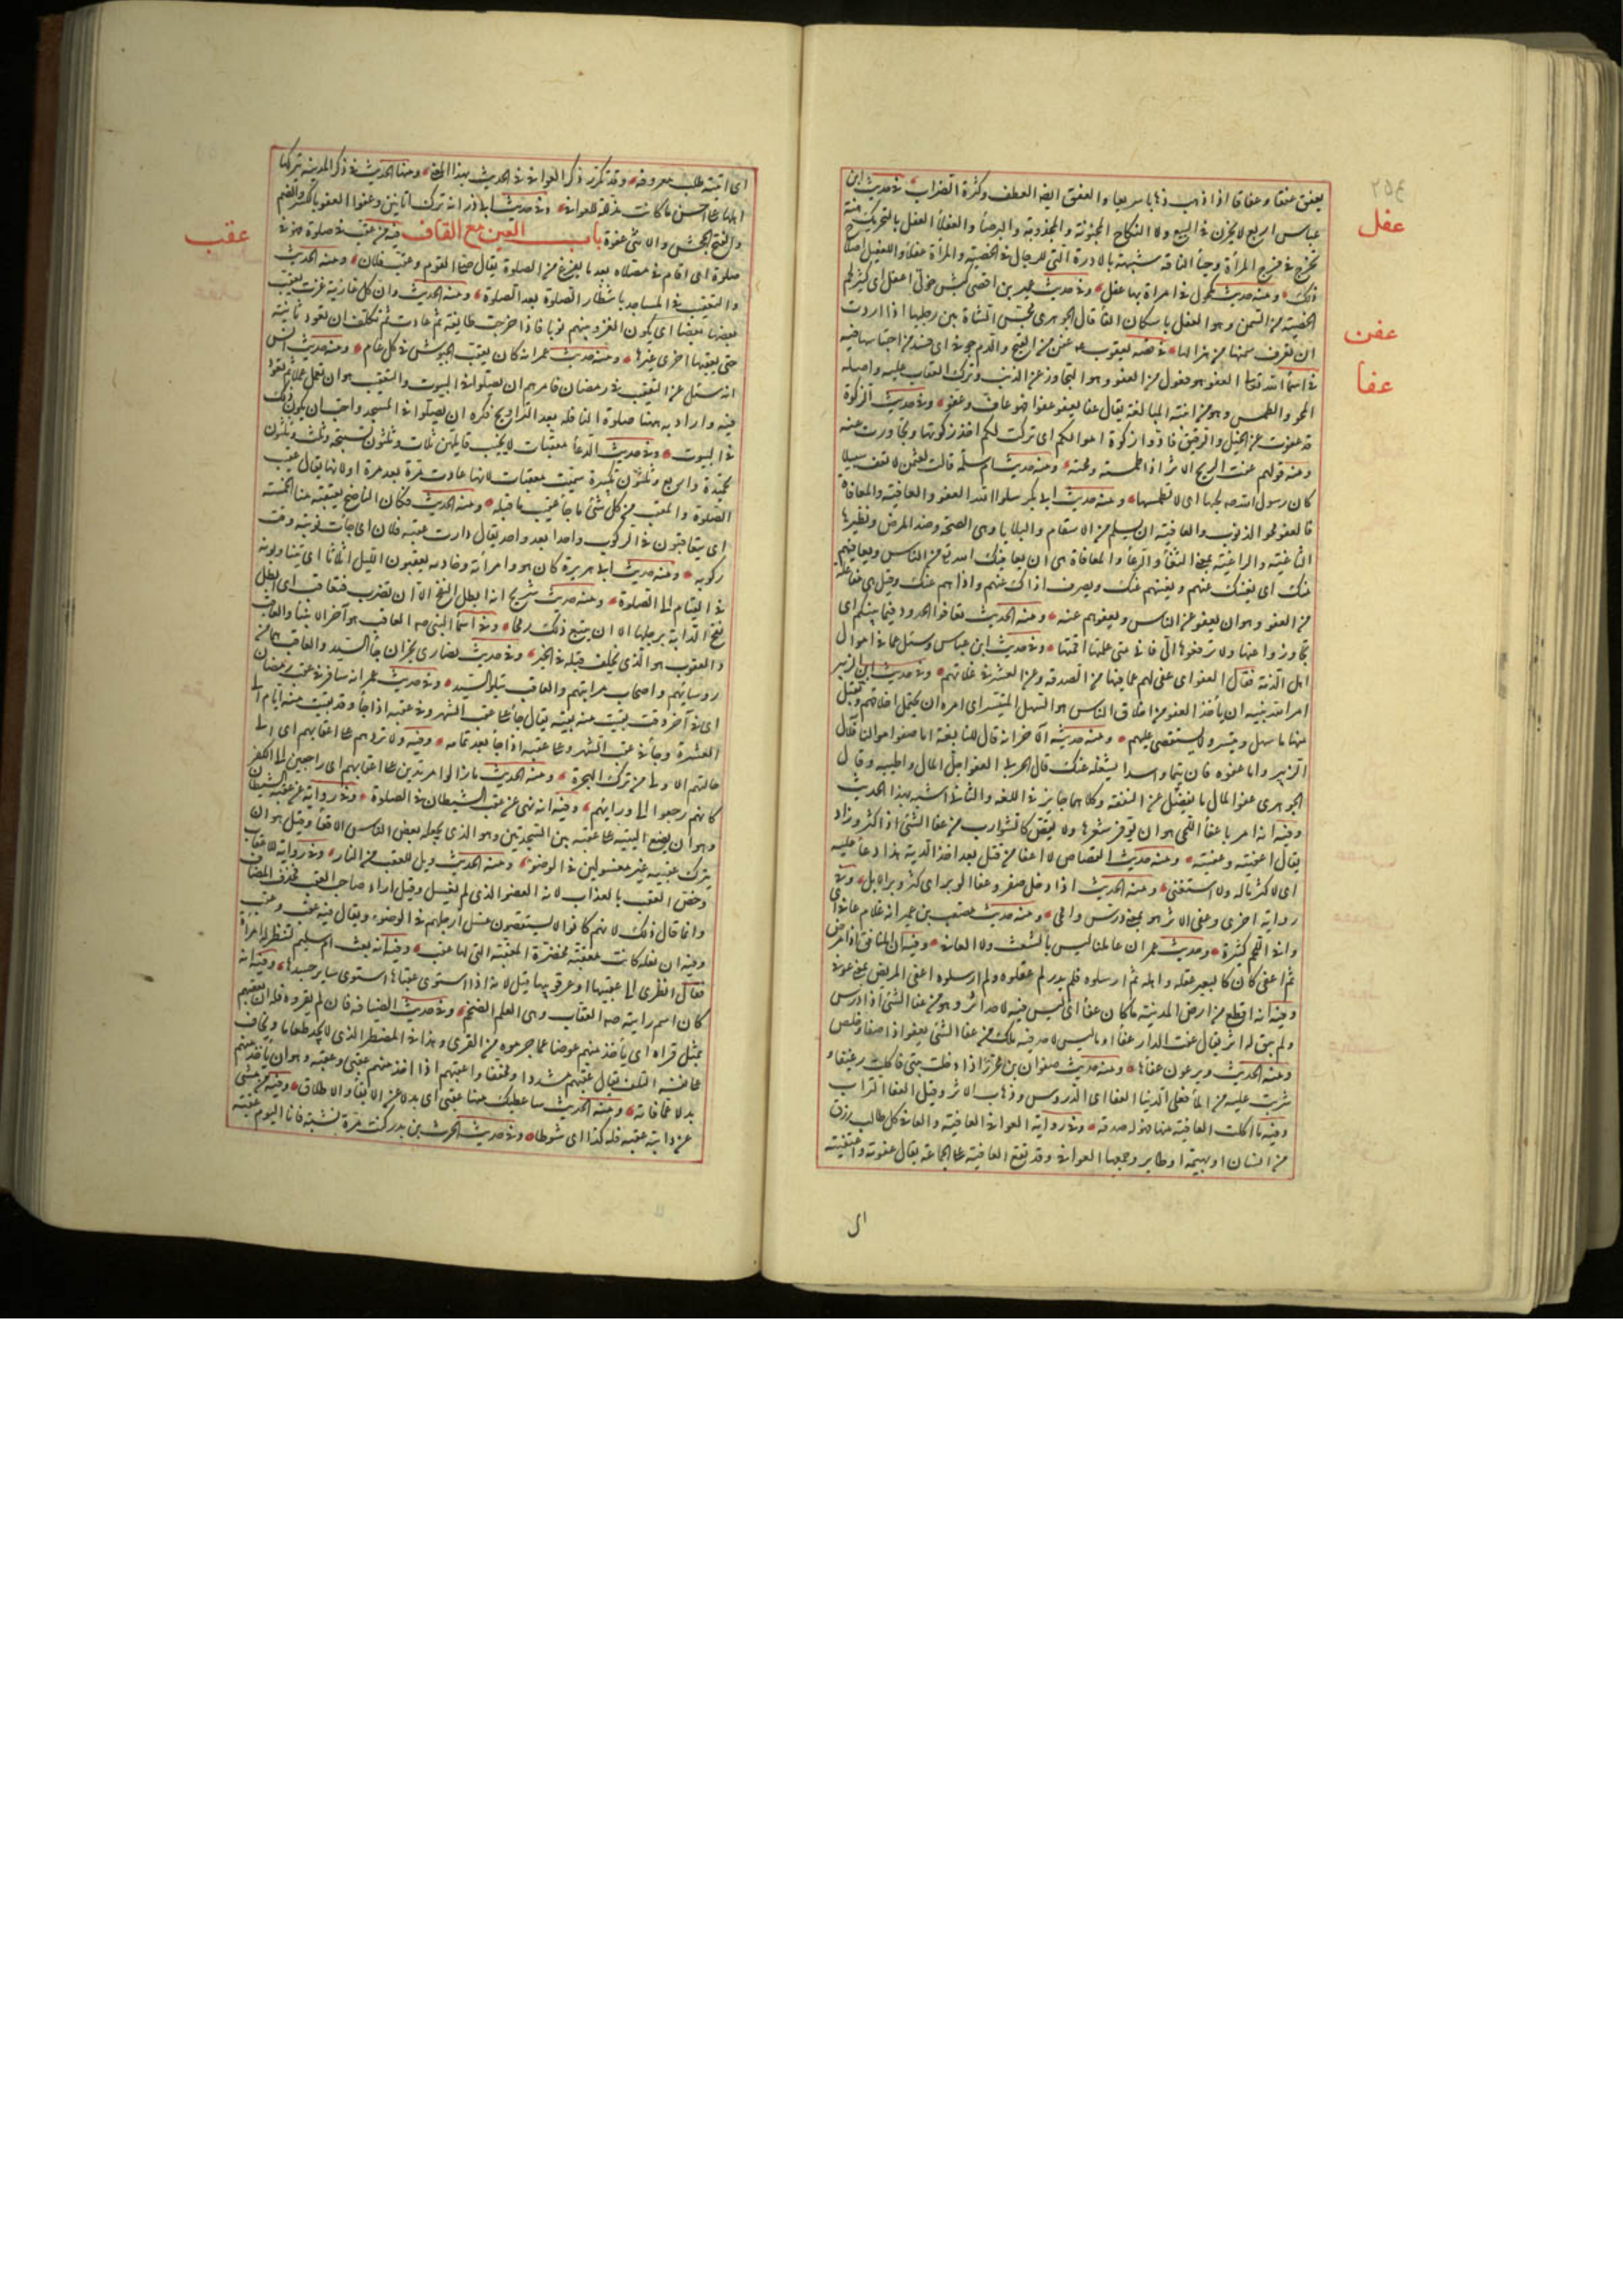 يعفق عفقا وعفاقا اذا ذهب ذهابا سريعا والعفق ايضا العطف وكثرة الضراب في حديث ابن
عفل
عباس اربع لا يجزن في البيع ولا النكاح المجنونة والمجذومة والبرصاء والعفلاء العفل بالتحريك هنة
تخرج في فرج المرأة وحياء الناقة شبيهة بالادرة التي للرجال في الخصية والمرأة عفلاء والتعفيل اصلاح
ذلك ومنه حديث مكحول في امراة بها عفل وفي حديث عمير بن افصى كبش حولي اعفل اي كثير شحم
الخصية من السمن وهو العفل باسكان الفاء قال الجوهري مجس الشاة بين رجليها اذا اردت
عفن
ان تعرف سمنها من هزالها في قصة يعقوب عم عفن من القيح والدم جوفي اي فسد من احتباسهما فيه
عفا
في اسماء الله تعالى العفو هو فعول من العفو وهو التجاوز عن الذنب وترك العقاب عليه واصله
المحو والطمس وهو من ابنية المبالغة يقال عفا يعفو عفوا فهو عاف وعفو وفي حديث الزكوة
قد عفوت عن الخيل والرقيق فادوا زكوة اموالكم اي تركت لكم اخذ زكوتها وتجاوزت عنه
ومنه قولهم عفت الريح الاثر اذا طمسته ومحته ومنه حديث ام سلمة قالت لعثمن لا تعف سبيلا
كان رسول الله صه لحبها اي لا تطمسها ومنه حديث ابي بكر سلوا الله العفو والعافية والمعافاة
فالعفو محو الذنوب والعافية ان يسلم من الاسقام والبلايا وهي الصحة وضد المرض ونظيرها
الثاغية والراغية بمعنى الثغاء والرغاء والمعافاة هي ان يعافيك الله من الناس ويعافيهم
منك اي يغنيك عنهم ويغنيهم عنك ويصرف اذاك عنهم واذاهم عنك وقيل هي مفاعلة
من العفو وهو ان يعفو عن الناس ويعفوهم عنه ومنه الحديث تعافوا الحدود فيما بينكم اي
تجاوزوا عنها ولا ترفعوها الي فاني متى علمتها اقمتها وفي حديث ابن عباس وسئل عما في اموال
اهل الذمة فقال العفو اي عفي لهم عما فيها من الصدقة وعن العشر في غلاتهم وفي حديث ابن الزبير
امر الله نبيه ان يأخذ العفو من اخلاق الناس هو السهل المتيسر اي امره ان يحتمل اخلاقهم ويقبل
منها ما سهل وتيسر ولا يستقصي عليهم ومنه حديثه الآخر انه قال للنابغة اما صفو اموالنا فلآل
الزبير واما عفوه فان تيما واسدا يشغله عنك قال الحربي العفو اجل المال واطيبه وقال
الجوهري عفو المال ما يفضل عن النفقة وكلاهما جايز في اللغة والثاني اشبه بهذا الحديث
وفيه انه امر باعفاء اللحى هو ان توفر شعرها ولا يقص كالشوارب من عفا الشئ اذا كثر وزاد
يقال اعفيته وعفيته ومنه حديث القصاص لا اعفا من قتل بعد اخذ الدية هذا دعاء عليه
اي لا كثر ماله ولا استغنى ومنه الحديث اذا دخل صفر وعفا الوبر اي كثر وبر الابل وفي
رواية اخرى وعفى الاثر هو بمعنى درس وامحى ومنه حديث مصعب بن عمير انه غلام عاف اي
وافي اللحم كثيره وحديث عمر ان عاملنا ليس بالشعث ولا العافي وفيه ان المنافق اذا مرض
ثم اعفي كان كالبعير عقله اهله ثم ارسلوه فلم يدر لم عقلوه ولم ارسلوه اعفي المريض بمعنى عوفي
وفيه انه اقطع من ارض المدينة ما كان عفاء اي ليس فيه لاحد اثر وهو من عفا الشئ اذا درس
ولم يبق له اثر يقال عفت الدار عفاء او ما ليس لاحد فيه ملك من عفا الشئ يعفو اذا صفا وخلص
ومنه الحديث ويرعون عفاها ومنه حديث صفوان بن محرز اذا دخلت بيتي فاكلت رغيفا و
شربت عليه من الماء فعلى الدنيا العفا اي الدروس وذهاب الاثر وقيل العفا التراب
وفيه ما اكلت العافية منها فهو له صدقة وفي رواية العوافي العافية والعافي كل طالب رزق
من انسان او بهيمة او طاير وجمعها العوافي وقد تقع العافية على الجماعة يقال عفوته واعتفيته
اي
اي اتيته طلب معروفه وقد تكرر ذكر العوافي في الحديث بهذا المعنى ومنها الحديث في ذكر المدينة يتركها
اهلها على احسن ما كانت مذللة للعوافي وفي حديث ابي ذر انه ترك اتانين وعفوا العفو بالكسر والضم
والفتح الجحش والانثى عفوة باب العين مع القاف فيه من عقب في صلوة فهو في
عقب
صلوة اي اقام في مصلاه بعد ما يفرغ من الصلوة يقال صلى القوم وعقب فلان ومنه الحديث
والتعقيب في المساجد بانتظار الصلوة بعد الصلوة ومنه الحديث وان كل غازية غزت يعقب
بعضها بعضا اي يكون الغزو بينهم نوبا فاذا خرجت طايفة ثم عادت ثم تكلف ان تعود ثانية
حتى يعقبها اخرى غيرها ومنه حديث عمر انه كان يعقب الجيوش في كل عام ومنه حديث انس
انه سئل عن التعقيب في رمضان فامرهم ان يصلوا في البيوت والتعقيب هو ان تعمل عملا ثم تعود
فيه واراد به ههنا صلوة النافلة بعد التراويح فكره ان يصلوا في المسجد واحب ان يكون ذلك
في البيوت وفي حديث الدعاء معقبات لا يخيب قايلهن ثلاث وثلثون تسبيحة وثلث وثلثون
تحميدة واربع وثلثون تكبيرة سميت معقبات لانها عادت مرة بعد مرة او لانها يقال عقيب
الصلوة والمعقب من كل شئ ما جاء عقيب ما قبله ومنه الحديث فكان الناضح يعتقبه منا الخمسة
اي يتعاقبون في الركوب واحدا بعد واحد يقال دارت عقبة فلان اي جاءت نوبته ووقت
ركوبه ومنه حديث ابي هريرة كان هو وامرأته وخادمه يعتقبون الليل اثلاثا اي يتناوبونه
في القيام الى الصلوة ومنه حديث شريح انه ابطل النفح الا ان تضرب فتعاقب اي ابطل
نفح الدابة برجلها الا ان يتبع ذلك رمحا وفي اسماء النبي صه العاقب هو آخر الانبياء والعاقب
والعقوب هو الذي يخلف من قبله في الخير وفي حديث نصارى نجران جاء السيد والعاقب هما من
روسائهم واصحاب مراتبهم والعاقب يتلو السيد وفي حديث عمر انه سافر في عقب رمضان
اي في آخره وقد بقيت منه بقية يقال جاء على عقب الشهر وفي عقبه اذا جاء وقد بقيت منه ايام الى
العشرة وجاء في عقب الشهر وعلى عقبه اذا جاء بعد تمامه وفيه ولا تردهم على اعقابهم اي الى
حالتهم الاولى من ترك الهجرة ومنه الحديث ما زالوا مرتدين على اعقابهم اي راجعين الى الكفر
كانهم رجعوا الى ورايهم وفيه انه نهى عن عقب الشيطان في الصلوة وفي رواية عن عقبة الشيطان
وهو ان يضع اليتيه على عقبيه بين السجدتين وهو الذي يجعله بعض الناس الاقعاء وقيل هو ان
يترك عقبيه غير مغسولين في الوضوء ومنه الحديث ويل للعقب من النار وفي رواية للاعقاب
وخص العقب بالعذاب لانه العضو الذي لم يغسل وقيل اراد صاحب العقب فحذف المضاف
وانما قال ذلك لانهم كانوا لا يستقصون غسل ارجلهم في الوضوء ويقال فيه عقب وعقب
وفيه ان نعله كانت معقبة مخصرة المعقبة التي لها عقب وفيه انه بعث ام سليم لتنظر له امرأة
فقال انظري الى عقبيها او عرقوبيها قيل لانه اذا استوى عقباها استوى ساير جسدها وفيه انه
كان اسم رايته صه العقاب وهي العلم الضخم وفي حديث الضيافة فان لم يقروه فله ان يعقبهم
بمثل قراه اي يأخذ منهم عوضا عما حرموه من القرى وهذا في المضطر الذي لا يجد طعاما ويخاف
على نفسه التلف يقال عقبهم مشددا ومخففا واعقبهم اذا اخذ منهم عقبى وعقبة وهو ان يأخذ منهم
بدلا عما فاته ومنه الحديث ساعطيك منها عقبى اي بدلا عن الابقاء والاطلاق وفيه من مشى
عن دابته عقبة فله كذا اي شوطا وفي حديث الحرث بن بدر كنت مرة نشبة فانا اليوم عقبة